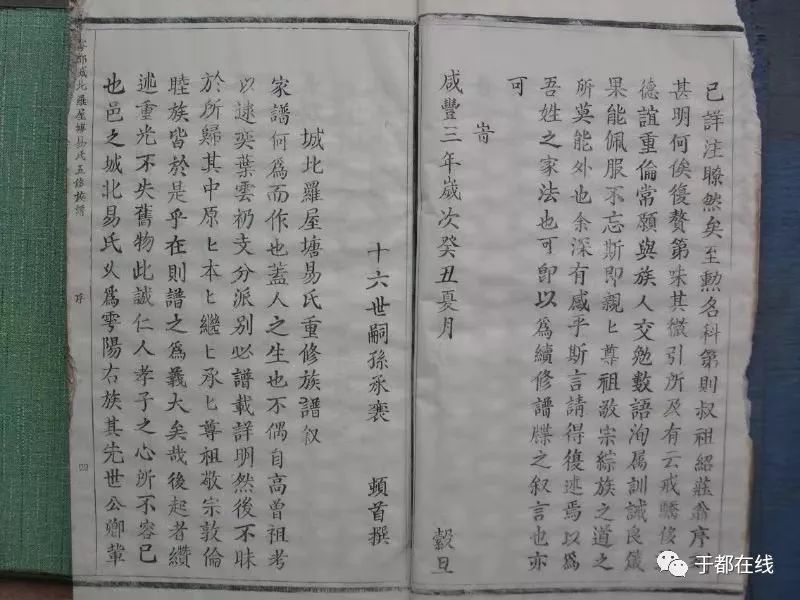 已詳注瞭然矣至勲名科第則叔祖紹莊翁序
甚明何俟復贅第味其微引所及有云戒驕侈
德誼重倫常願與族人交勉數語洵属訓誡良箴
果能佩服不忘斯即親匕尊祖敬宗綜族之道之
所莫能外也余深有感乎斯言請得復述焉以為
吾姓之家法也可卽以為續修譜牒之叙言也亦
可
旹
咸豐三年歲次癸丑夏月 穀旦
十六世嗣孫承褒 頓首撰
城北羅屋塘易氏重修族譜叙
家譜何為而作也蓋人之生也不偶自高曾祖考
以逮奕葉雲礽支分派別必譜載詳明然後不昧
於所歸其中原匕本匕繼匕承匕尊祖敬宗敦倫
睦族皆於是乎在則譜之為義大矣哉後起者纘
述重光不失舊物此誠仁人孝子之心所不容已
也邑之城北易氏乆為雩陽右族其先世公卿輩
城北羅屋塘易氏五修族譜 序
于都在线